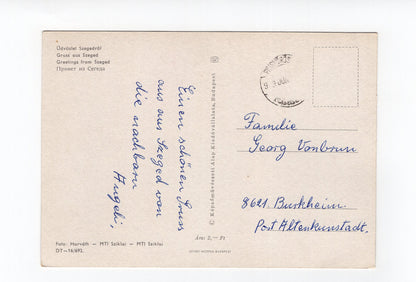 Üdvözlet Szegedről
Gruss aus Szeged
Greetings from Szeged
Привет из Сегеда
Einen schönen Gruss
aus aus Szeged von
die nachbarn
Angeli,
Foto: Horváth — MTI Sziklai — MTI Sziklai
© Képzőművészeti Alap Kiadóvállalata, Budapest
Ára: 2,— Ft
Familie
Georg Vonbrun
8621. Burkheim.
Post Altenkunstadt,